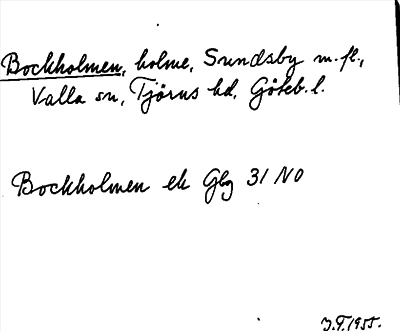 Bockholmen, holme, Sundsby m.fl.,
Valla sn, Tjörns hd, Göteb. l.
Bockholmen ek Gbg 31 NO
J.T. 1955.